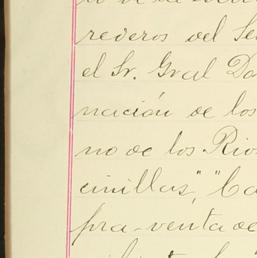 rederos del Se
el Sr. Gral Do
nación de los
no de los Rios
cinillas", "La
pra-venta de